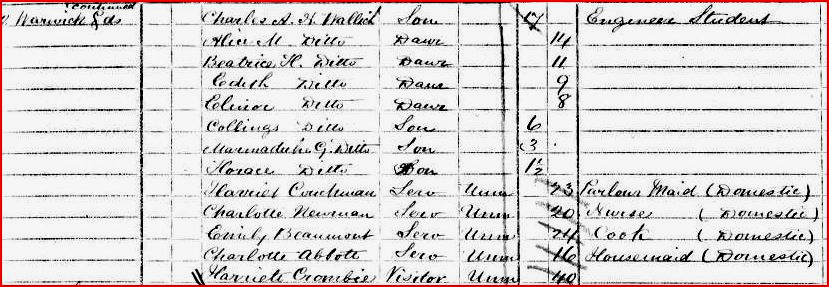 continued
2 Warwick Gds Charles A. H. Wallich Son 17 Engineer Student
Alice M. Ditto Dawr 14
Beatrice H. Ditto Dawr 11
Edith Ditto Dawr 9
Elinor Ditto Dawr 8
Collings Ditto Son 6
Marmaduke G. Ditto Son 3
Horace Ditto Son 1½
Harriet Couchman Serv Unm 23 Parlour Maid (Domestic)
Charlotte Newman Serv Unm 20 Nurse (Domestic)
Emily Beaumont Serv Unm 24 Cook (Domestic)
Charlotte Abbott Serv Unm 16 Housemaid (Domestic)
Harriete Crombie Visitor Unm 40